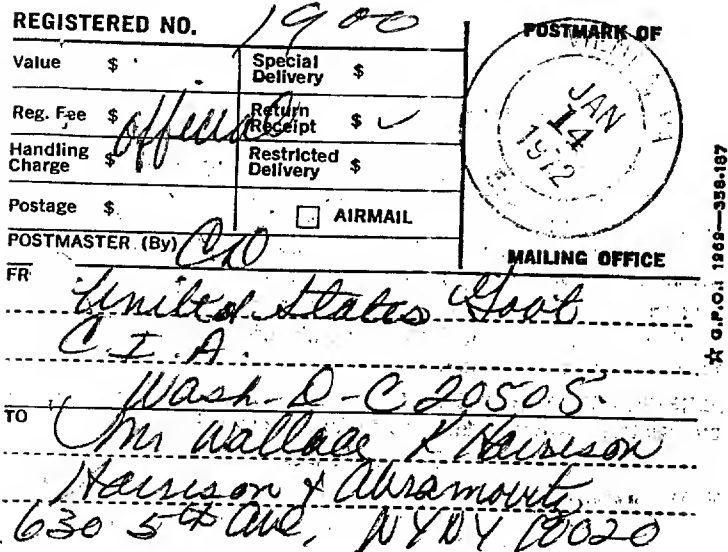 REGISTERED NO. 1900
POSTMARK OF
Value $
Special Delivery $
Reg. Fee $ official
Return Receipt $ ✓
Handling Charge $
Restricted Delivery $
Postage $
AIRMAIL
POSTMASTER (By)
JAN
14
1972
MAILING OFFICE
FR United States Govt
C.I.A.
Wash-D-C 20505
TO Mr Wallace K Harrison
Harrison & Abramovitz
630 5th Ave, NYNY 10020
☆ G.P.O.: 1969—358-187